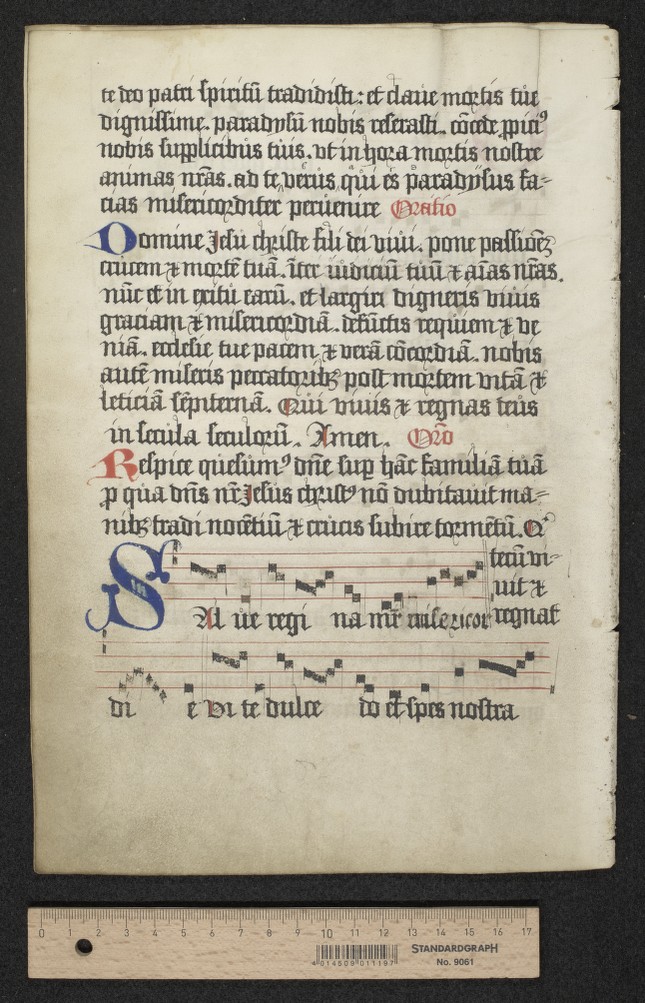 te deo patri spiritū tradidisti: et claue mortis tue
dignissime. paradysū nobis reserasti. cōcede ꝓpici⁹
nobis supplicibus tuis. vt in hora mortis nostre
animas nr̄as. ad te, verus, qui es paradysus fa=
cias misericorditer peruenire Oratio
Domine Jesu christe fili dei viui. pone passionē
crucem ⁊ mortē tuā. īter iudiciū tuū ⁊ aīas nr̄as.
nūc et in exitu earū. et largiri digneris viuis
graciam ⁊ misericordiā. defūctis requiem ⁊ ve
niā. ecclesie tue pacem ⁊ verā cōcordiā. nobis
autē miseris peccatoribꝫ post mortem vitā ⁊
leticiā sēpiternā. Qui viuis ⁊ regnas deus
in secula seculorū. Amen. Orō
Respice quesum⁹ dn̄e suꝑ hāc familiā tuā
ꝓ qua dn̄s nr̄ Jesus christ⁹ nō dubitauit ma=
nibꝫ tradi nocētiū ⁊ crucis subire tormētū. Q
tecū vi-
uit ⁊
regnat
SAl ue regi na mr̄ misericor
di e Vi te dulce do et spes nostra
0 1 2 3 4 5 6 7 8 9 10 11 12 13 14 15 16 17
4 014509 011197
STANDARDGRAPH
No. 9061